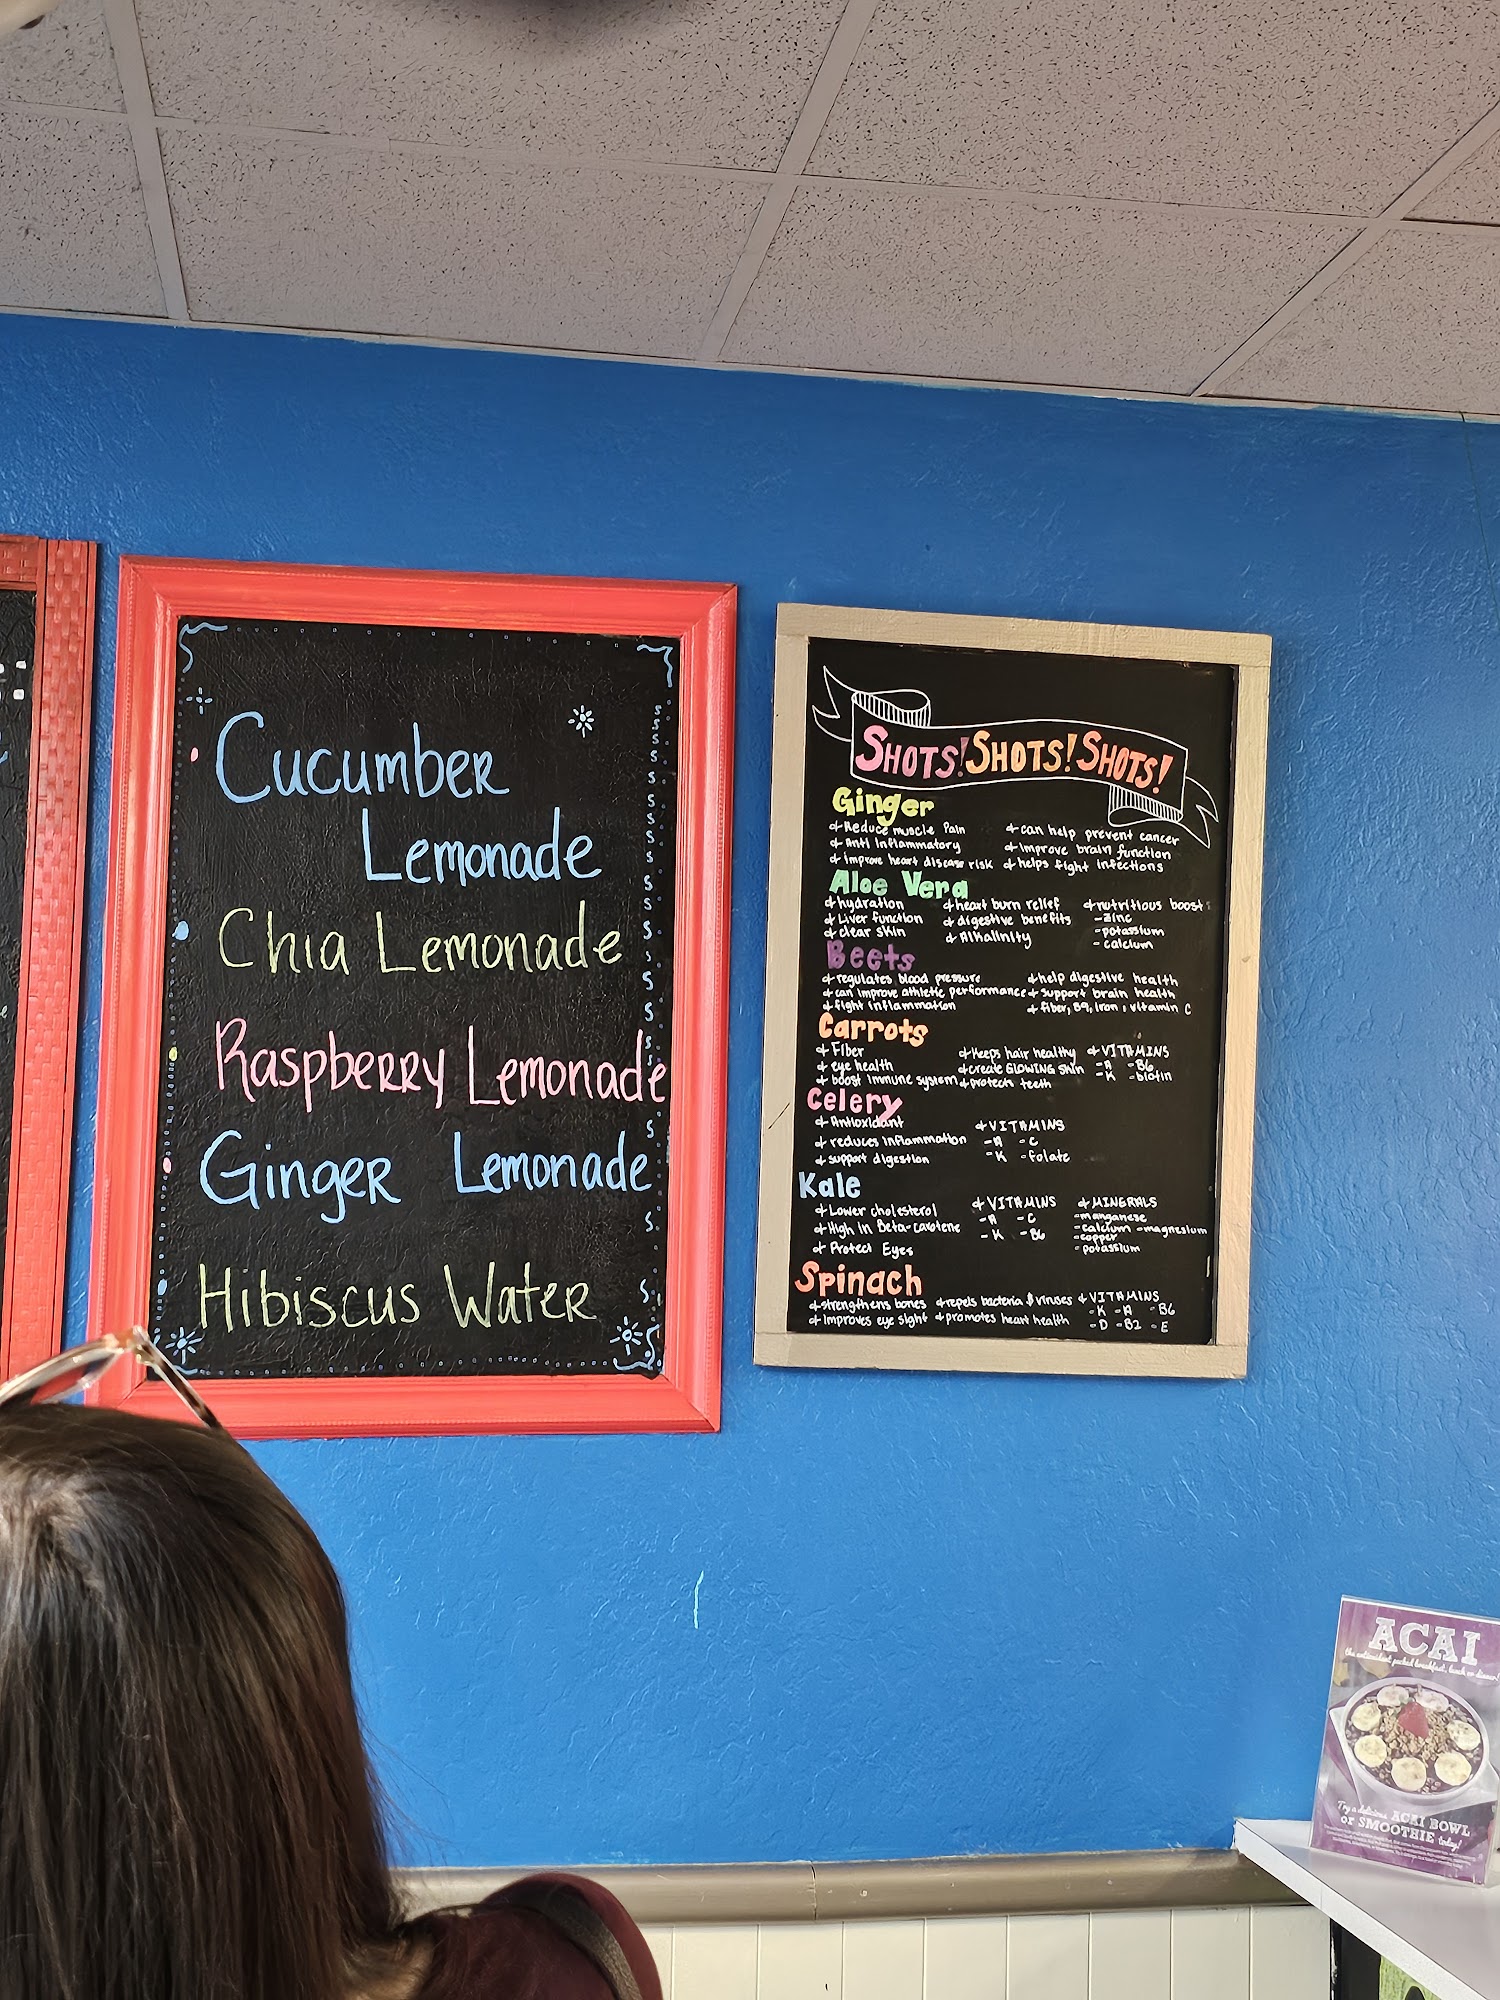 Cucumber
Lemonade
Chia Lemonade
Raspberry Lemonade
Ginger Lemonade
Hibiscus Water
SHOTS! SHOTS! SHOTS!
Ginger
Reduce muscle Pain can help prevent cancer
Anti Inflammatory improve brain function
improve heart disease risk helps fight infections
Aloe Vera
hydration heart burn relief nutritious boosts
Liver function digestive benefits -zinc
clear skin Alkalinity -potassium
- calcium
Beets
regulates blood pressure help digestive health
can improve athletic performance support brain health
fight inflammation fiber, B9, Iron, vitamin C
Carrots
Fiber Keeps hair healthy VITAMINS
eye health create GLOWING Skin -A -B6
boost immune system protects teeth -K -biotin
Celery
Antioxidant VITAMINS
reduces inflammation -A -C
support digestion -K -folate
Kale
Lower cholesterol VITAMINS MINERALS
High in Beta-carotene -A -C -manganese
-K -B6 -calcium -magnesium
Protect Eyes -copper
-potassium
Spinach
strengthens bones repels bacteria & viruses VITAMINS
improves eye sight promotes heart health -K -A -B6
-D -B2 -E
ACAI
the antioxidant packed breakfast, lunch or dinner!
Try a delicious ACAI BOWL
or SMOOTHIE today!